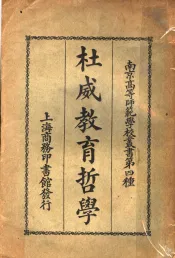 南京高等師範學校叢書第四種
杜威教育哲學
上海商務印書館發行